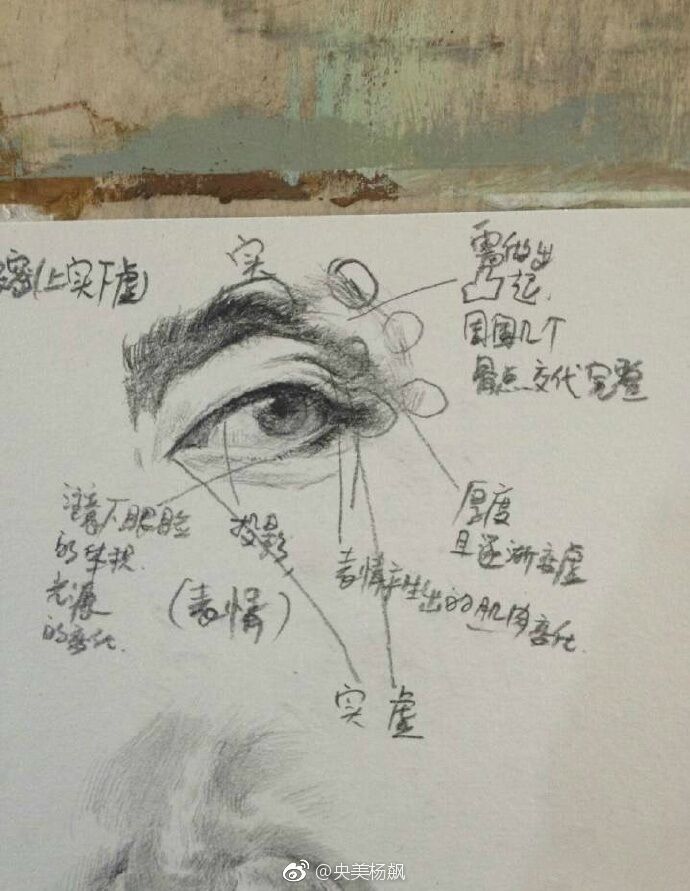 (上实下虚)
实
需做出
凸起.
周围几个
骨点交代完整
注意下眼睑
的体积.
光源
的变化.
投影
(表情)
厚度
且逐渐变虚
表情产生出的肌肉变化.
实 虚
@央美杨飙